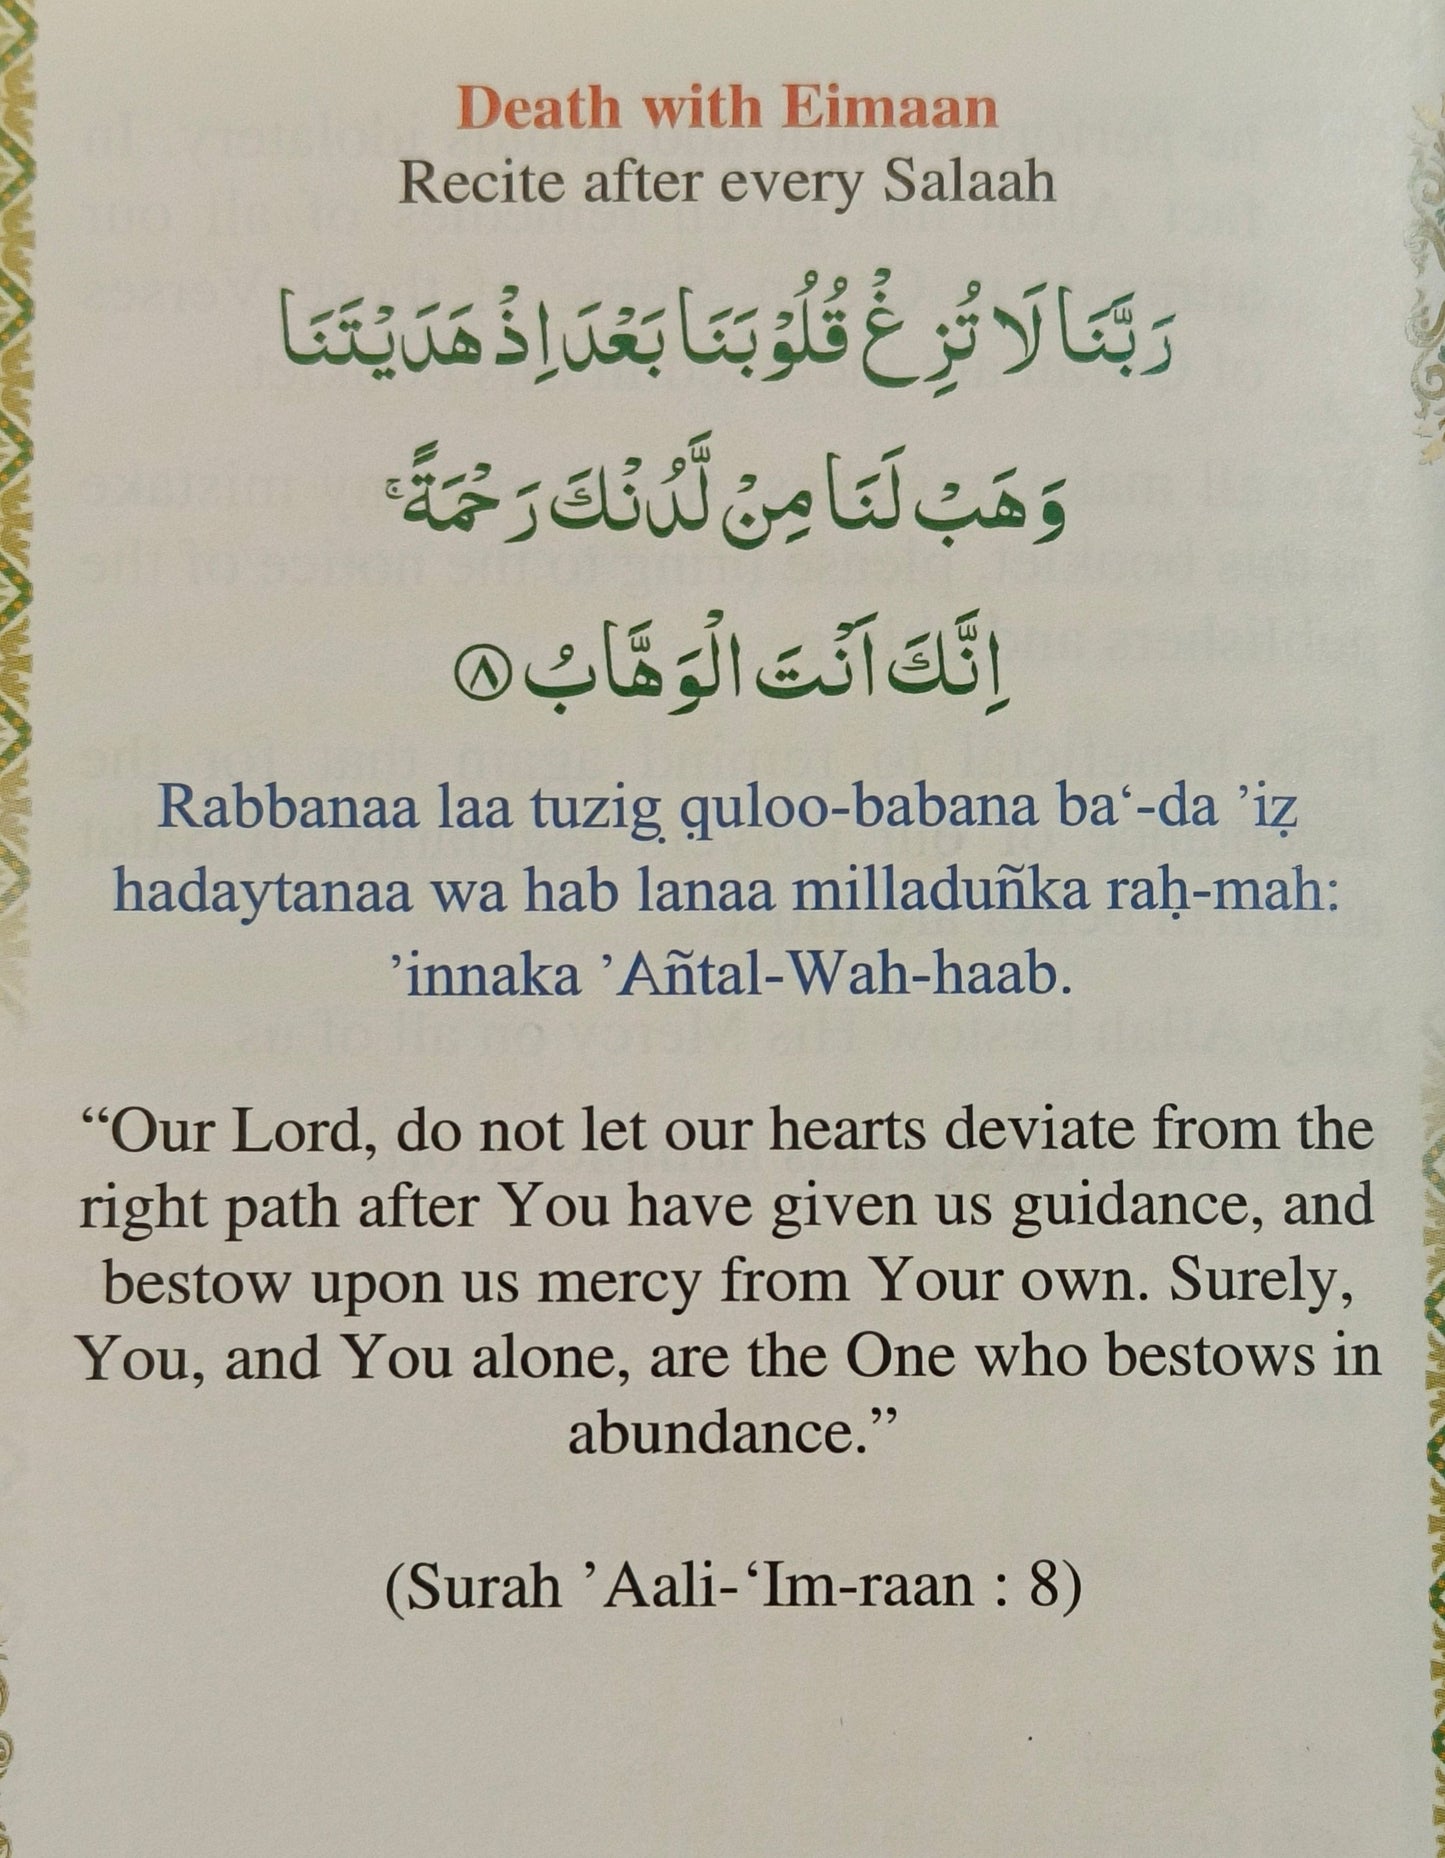 Death with Eimaan
Recite after every Salaah
رَبَّنَا لَا تُزِغْ قُلُوْبَنَا بَعْدَ اِذْ هَدَيْتَنَا
وَهَبْ لَنَا مِنْ لَّدُنْكَ رَحْمَةً ۚ
اِنَّكَ اَنْتَ الْوَهَّابُ ۝٨
Rabbanaa laa tuzig̣ q̣uloo-babana ba‘-da ’iẓ
hadaytanaa wa hab lanaa milladuñka raḥ-mah:
’innaka ’Añtal-Wah-haab.
“Our Lord, do not let our hearts deviate from the
right path after You have given us guidance, and
bestow upon us mercy from Your own. Surely,
You, and You alone, are the One who bestows in
abundance.”
(Surah ’Aali-‘Im-raan : 8)